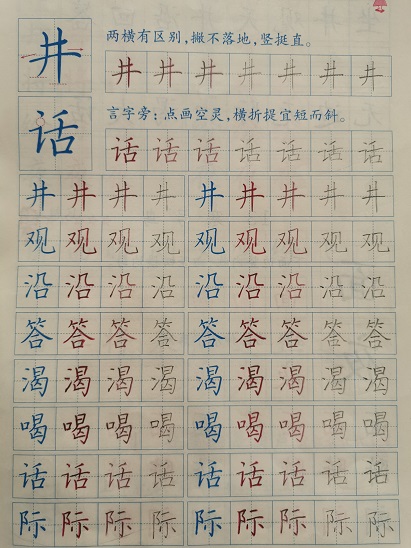 井 两横有区别，撇不落地，竖挺直。
井井井井井井井
话 言字旁：点画空灵，横折提宜短而斜。
话话话话话话话
井井井井 井井井井井
观观观观 观观观观观
沿沿沿沿 沿沿沿沿沿
答答答答 答答答答答
渴渴渴渴 渴渴渴渴渴
喝喝喝喝 喝喝喝喝喝
话话话话 话话话话话
际际际际 际际际际际